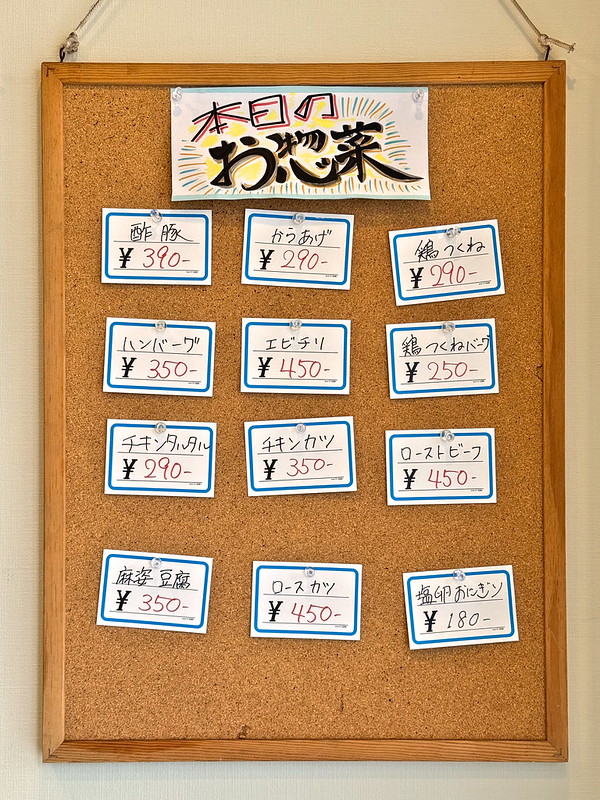 本日の
お惣菜
酢豚
¥ 390-
からあげ
¥ 290-
鶏つくね
¥ 290-
ハンバーグ
¥ 350-
エビチリ
¥ 450-
鶏つくねバーグ
¥ 250-
チキンタルタル
¥ 290-
チキンカツ
¥ 350-
ローストビーフ
¥ 450-
麻婆豆腐
¥ 350-
ロースカツ
¥ 450-
塩卵おにぎり
¥ 180-